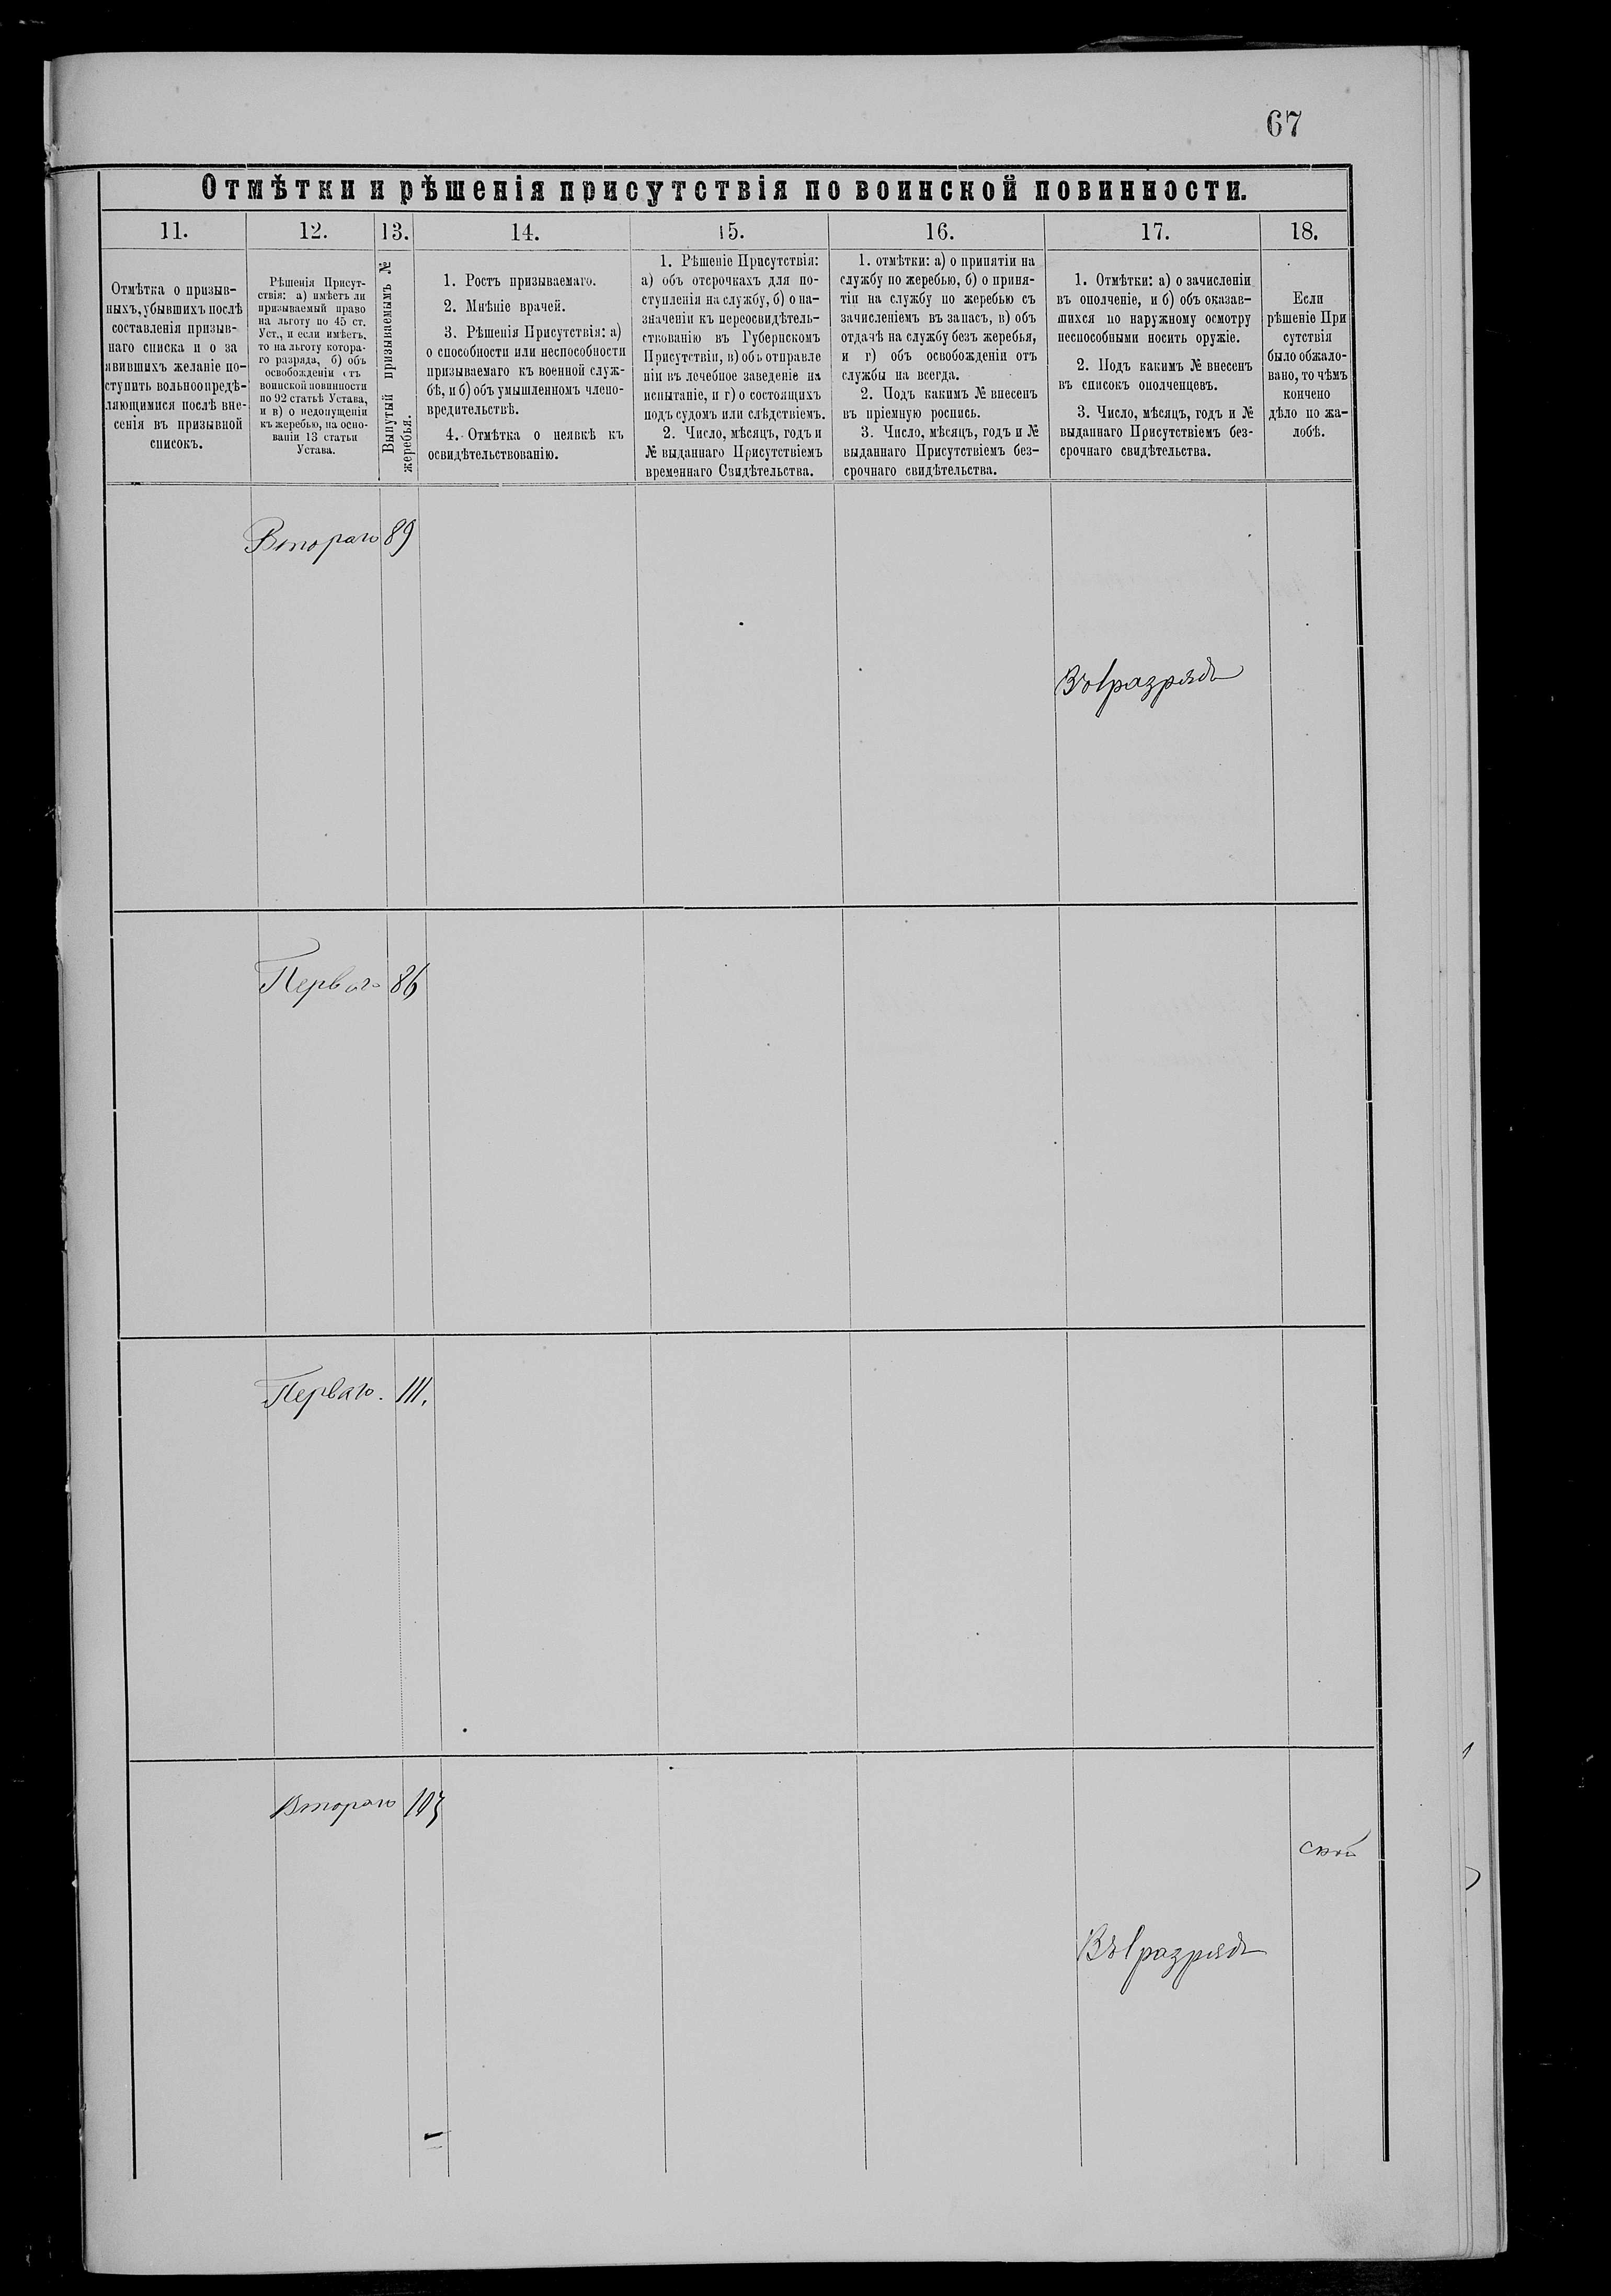 67
Отмѣтки и рѣшенія присутствія по воинской повинности.
11.
12.
13.
14.
15.
16.
17.
18.
Отмѣтка о призыв-
ныхъ, убывшихъ послѣ
составленія призыв-
наго списка и о за
явившихъ желаніе по-
ступить вольноопредѣ-
ляющимися послѣ вне-
сенія въ призывной
списокъ.
Рѣшенія Присут-
ствія: а) имѣетъ ли
призываемый право
на льготу по 45 ст.
Уст., и если имѣетъ,
то на льготу котора-
го разряда, б) объ
освобожденіи отъ
воинской повинности
по 92 статьѣ Устава,
и в) о недопущеніи
къ жеребью, на осно-
ваніи 13 статьи
Устава.
Вынутый призываемымъ №
жеребья.
1. Ростъ призываемаго.
2. Мнѣніе врачей.
3. Рѣшенія Присутствія: а)
о способности или неспособности
призываемаго къ военной служ-
бѣ, и б) объ умышленномъ члено-
вредительствѣ.
4. Отмѣтка о неявкѣ къ
освидѣтельствованію.
1. Рѣшеніе Присутствія:
а) объ отсрочкахъ для по-
ступленія на службу, б) о на-
значеніи къ переосвидѣтель-
ствованію въ Губернскомъ
Присутствіи, в) объ отправле
ніи въ лечебное заведеніе на
испытаніе, и г) о состоящихъ
подъ судомъ или слѣдствіемъ.
2. Число, мѣсяцъ, годъ и
№ выданнаго Присутствіемъ
временнаго Свидѣтельства.
1. отмѣтки: а) о принятіи на
службу по жеребью, б) о приня-
тіи на службу по жеребью съ
зачисленіемъ въ запасъ, в) объ
отдачѣ на службу безъ жеребья,
и г) объ освобожденіи отъ
службы на всегда.
2. Подъ какимъ № внесенъ
въ пріемную роспись.
3. Число, мѣсяцъ, годъ и №
выданнаго Присутствіемъ без-
срочнаго свидѣтельства.
1. Отмѣтки: а) о зачисленіи
въ ополченіе, и б) объ оказав-
шихся по наружному осмотру
неспособными носить оружіе.
2. Подъ какимъ № внесенъ
въ списокъ ополченцевъ.
3. Число, мѣсяцъ, годъ и №
выданнаго Присутствіемъ без-
срочнаго свидѣтельства.
Если
рѣшеніе При
сутствія
было обжало-
вано, то чѣмъ
кончено
дѣло по жа-
лобѣ.
Втораго 89
Въ I разрядъ
Перваго 86
Перваго. 111.
Втораго 107
Въ I разрядъ